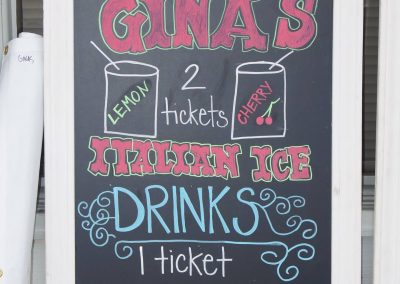 GINA'S
GINAS
LEMON
2
tickets
CHERRY
ITALIAN ICE
DRINKS
1 ticket